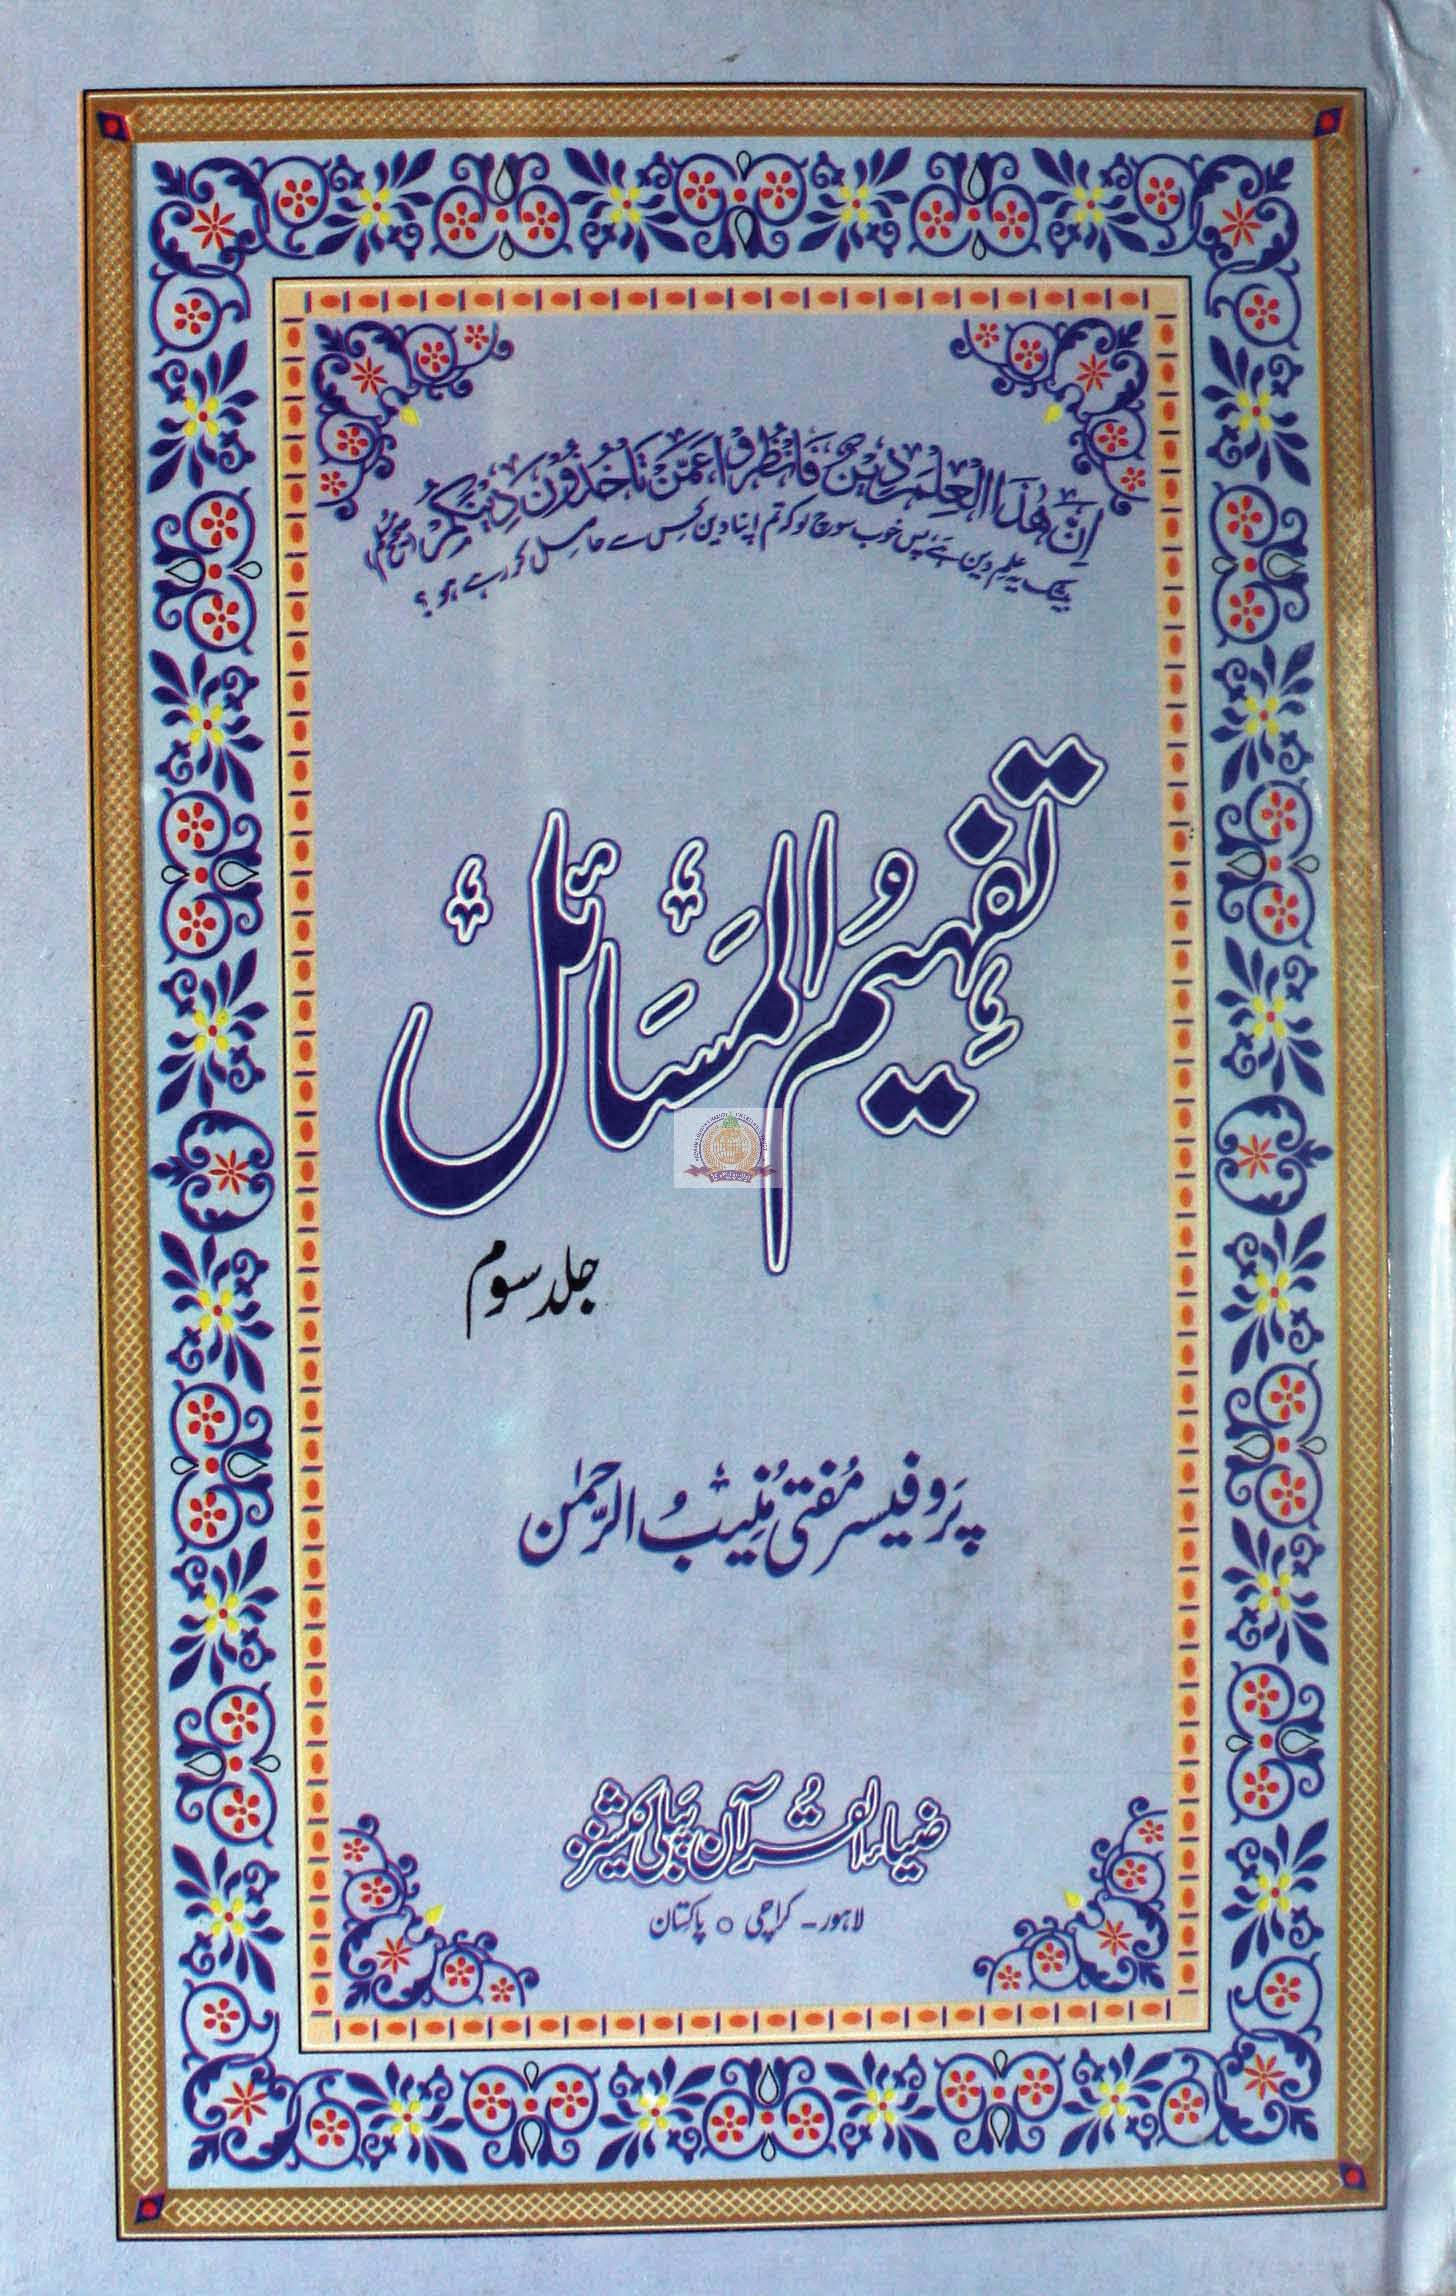 اِنَّ هٰذَا الْعِلْمَ دِیْنٌ فَانْظُرُوْا عَمَّنْ تَاْخُذُوْنَ دِیْنَکُمْ (صحیح مسلم)
بیشک یہ علم دین ہے، پس خوب سوچ لو کہ تم اپنا دین کس سے حاصل کر رہے ہو؟
تفہیم المسائل
جلد سوم
پروفیسر مفتی منیب الرحمٰن
ضیاءالقرآن پبلی کیشنز
لاہور - کراچی ○ پاکستان